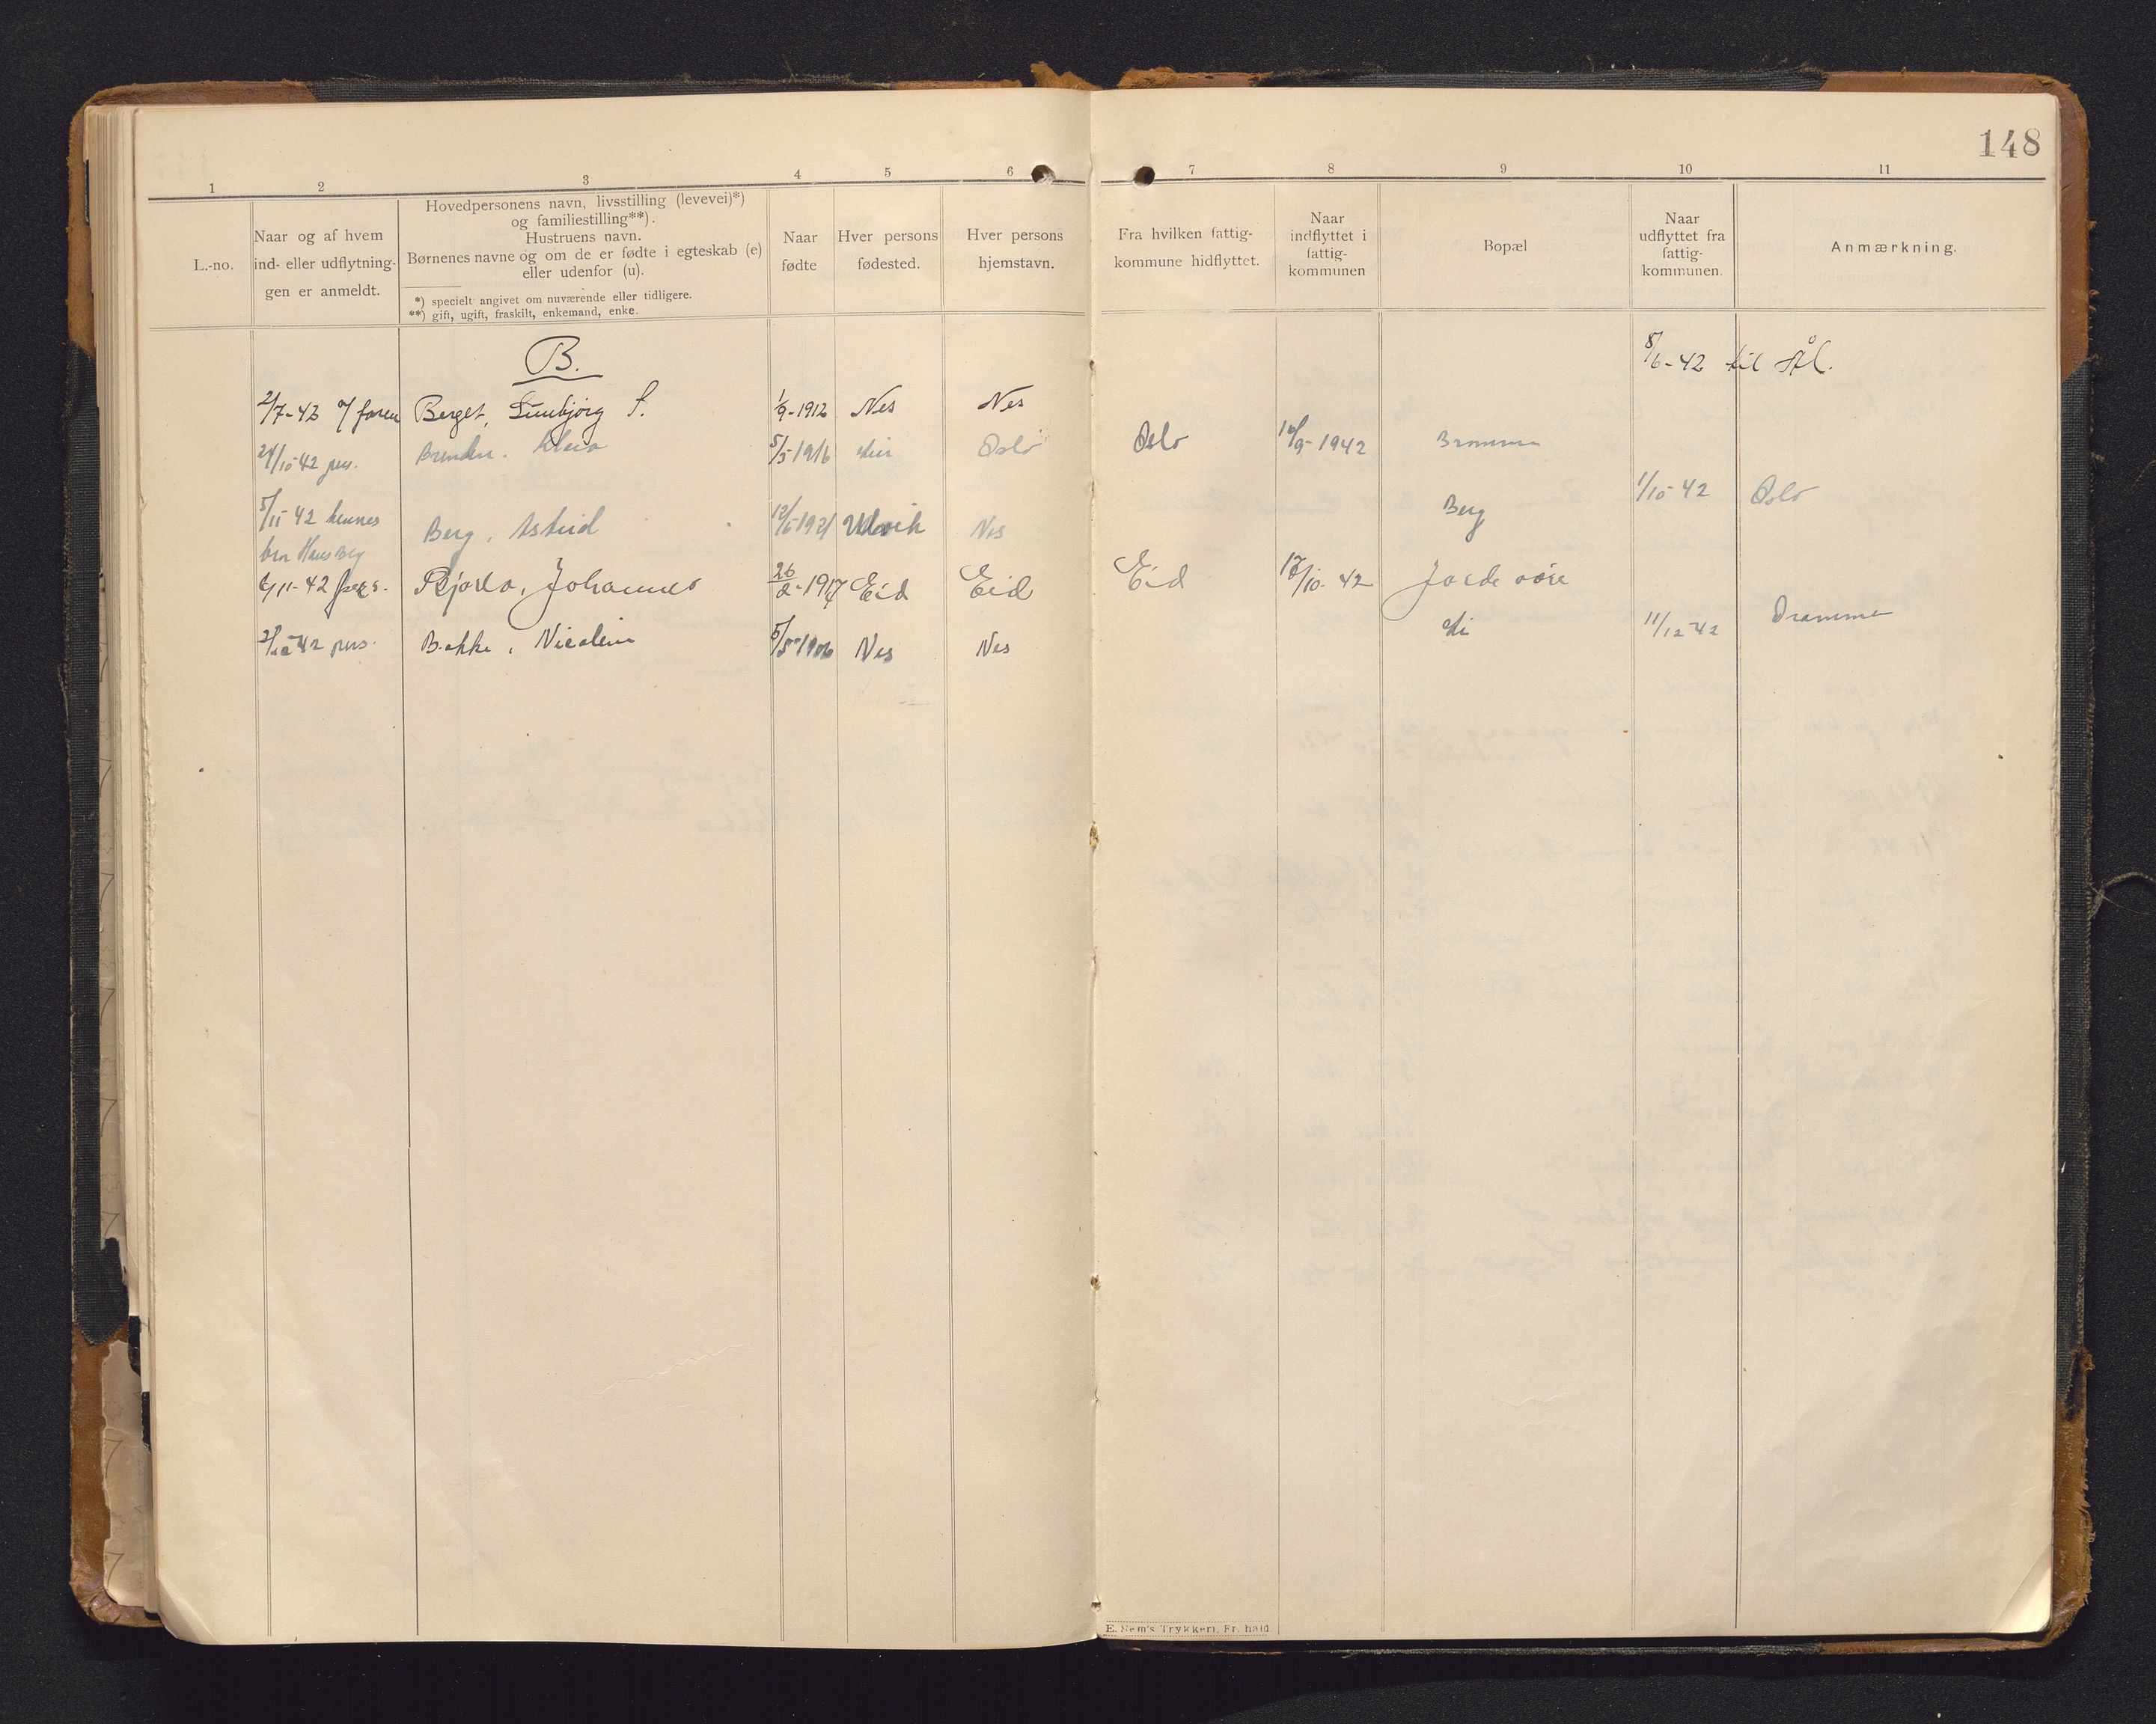 148
1 2 3 4 5 6 7 8 9 10 11
L.-no.
Naar og af hvem
ind- eller udflytnin-
gen er anmeldt.
Hovedpersonens navn, livsstilling (levevei)*)
og familiestilling**).
Hustruens navn.
Børnenes navne og om de er fødte i egteskab (e)
eller udenfor (u).
*) specielt angivet om nuværende eller tidligere.
**) gift, ugift, fraskilt, enkemand, enke.
Naar
fødte
Hver persons
fødested.
Hver persons
hjemstavn.
Fra hvilken fattig-
kommune hidflyttet.
Naar
indflyttet i
fattig-
kommunen
Bopæl
Naar
udflyttet fra
fattig-
kommunen.
Anmærkning.
B.
2/7-42 af faren Berget, Gunbjørg S. 1/9-1912 Nes Nes 8/6-42 til Ål.
24/10-42 pers. 5/5 1916 Oslo Oslo 10/9-1942 Bromma
5/11-42 hennes Berg, Astrid 12/5 1921 Ulvik Nes Berg 1/10-42 Oslo
bror Hans Berg
6/11-42 pers. Bjørlo, Johannes 26/2-1917 Eid Eid Eid 17/10-42 Jorde
2/12-42 pers. Bakke, Nicoline 5/5-1906 Nes Nes Li 11/12-42 Drammen
E. Sem's Trykkeri, Fr.hald.